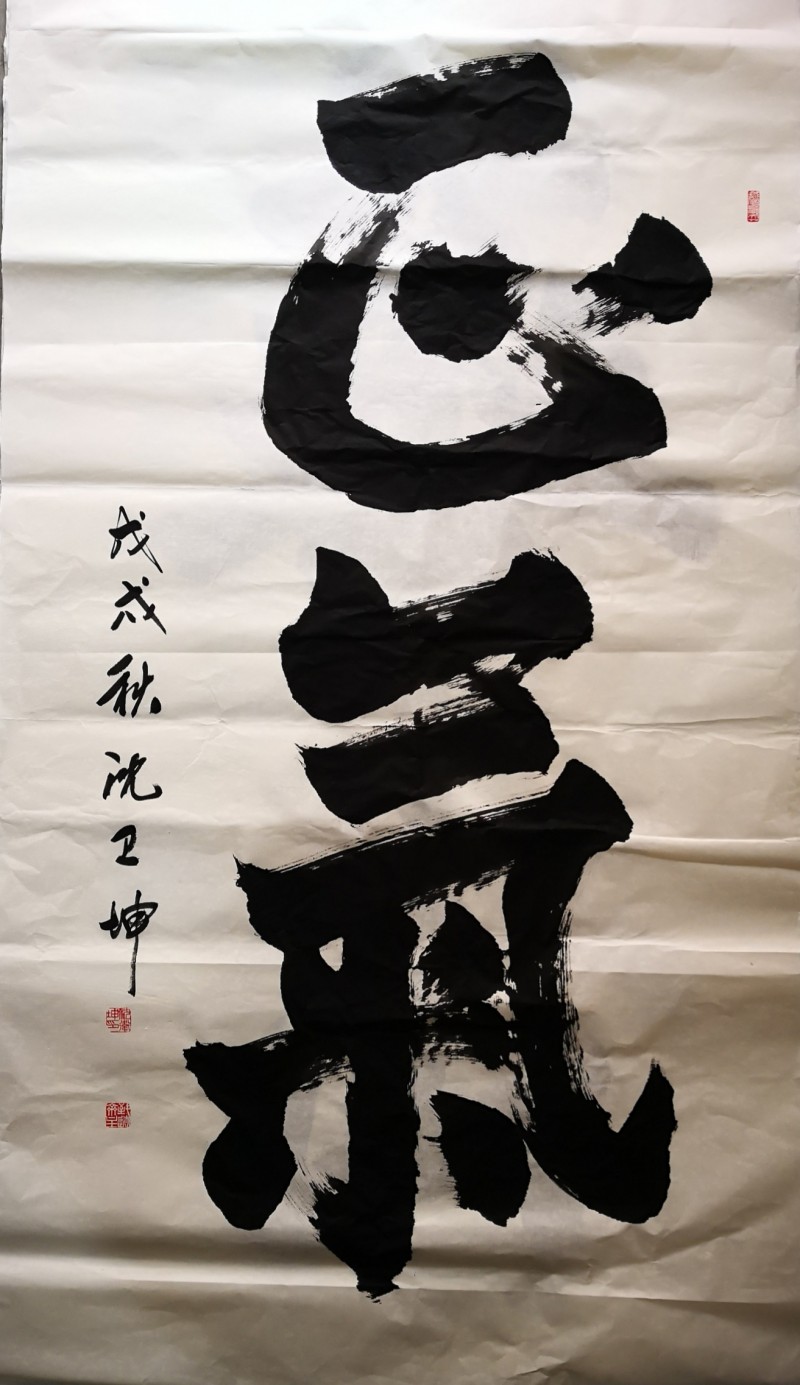 正氣
戊戌秋沈卫坤